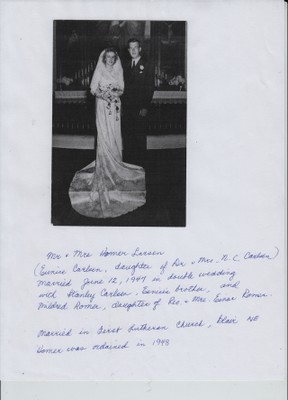 Mr & Mrs Homer Larsen
(Eunice Carlsen, daughter of Dr & Mrs. N. C. Carlsen)
Married June 12, 1949 in double wedding
with Stanley Carlsen, Eunice brother, and
Mildred Romer, daughter of Rev & Mrs. Einar Romer.
Married in First Lutheran Church, Blair NE
Homer was ordained in 1948